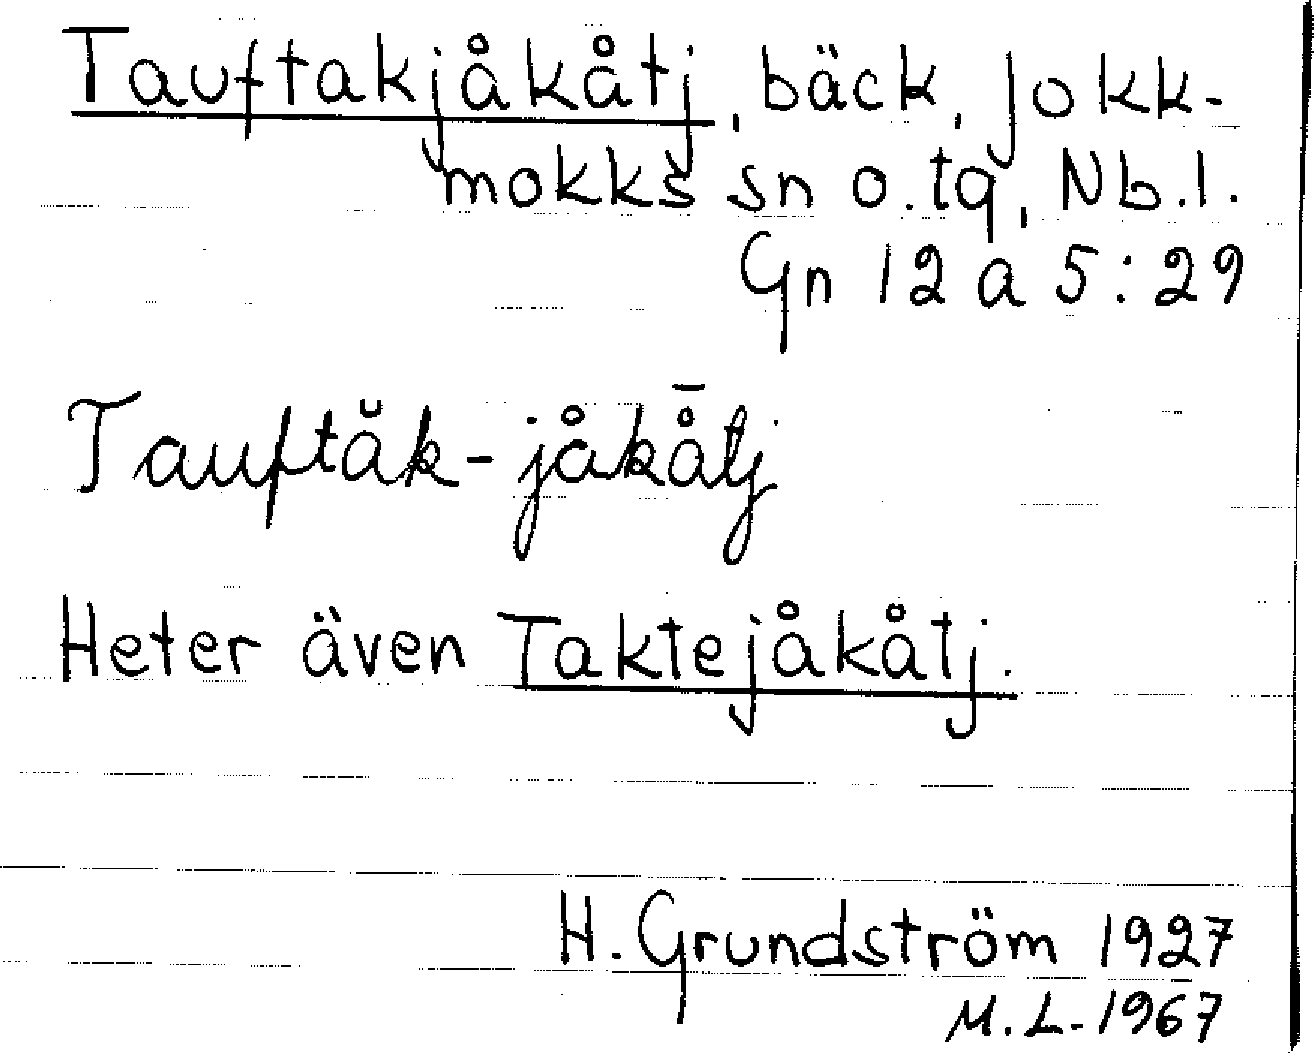 Tauftakjåkåtj, bäck, Jokk-
mokks sn o. tg, Nb. l.
Gn 12 a 5:29
Tauftăk-jåkå̄tj
Heter även Taktejåkåtj.
H. Grundström 1927
M. L. 1967